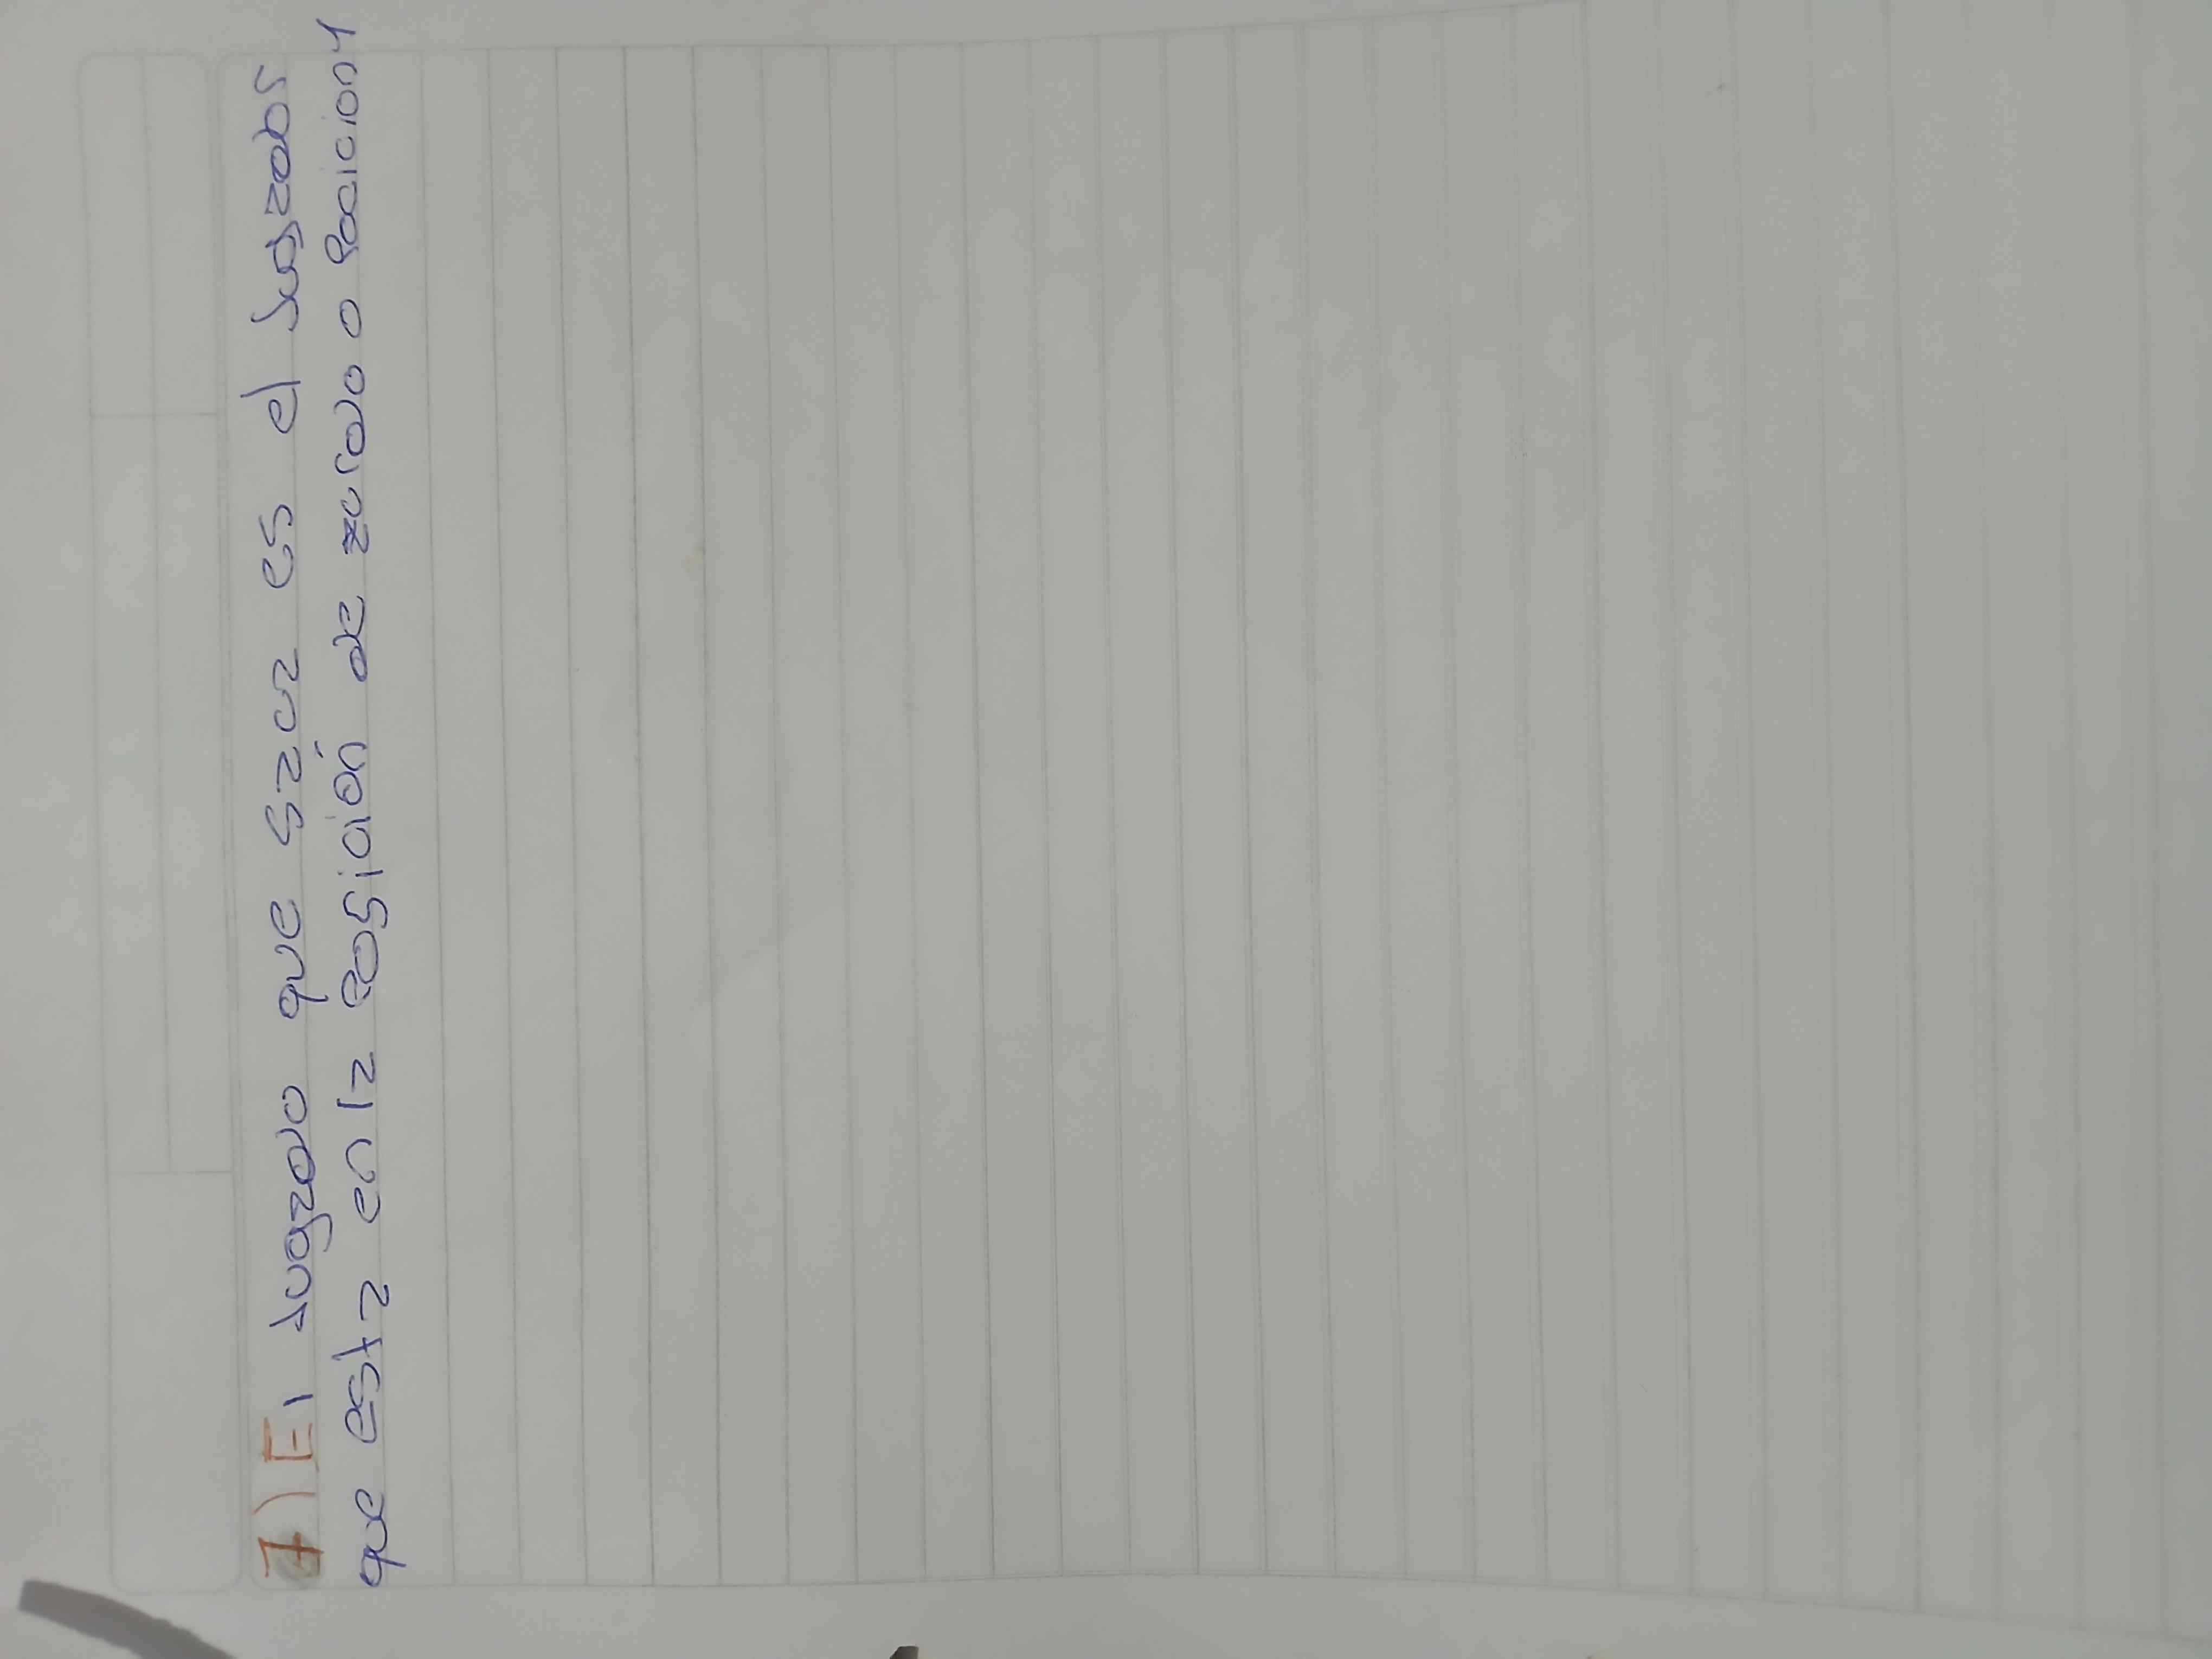 7) El Jugzdo que szcz es el Jugzdor
que estz en lz posición de zurado o Posicion 4